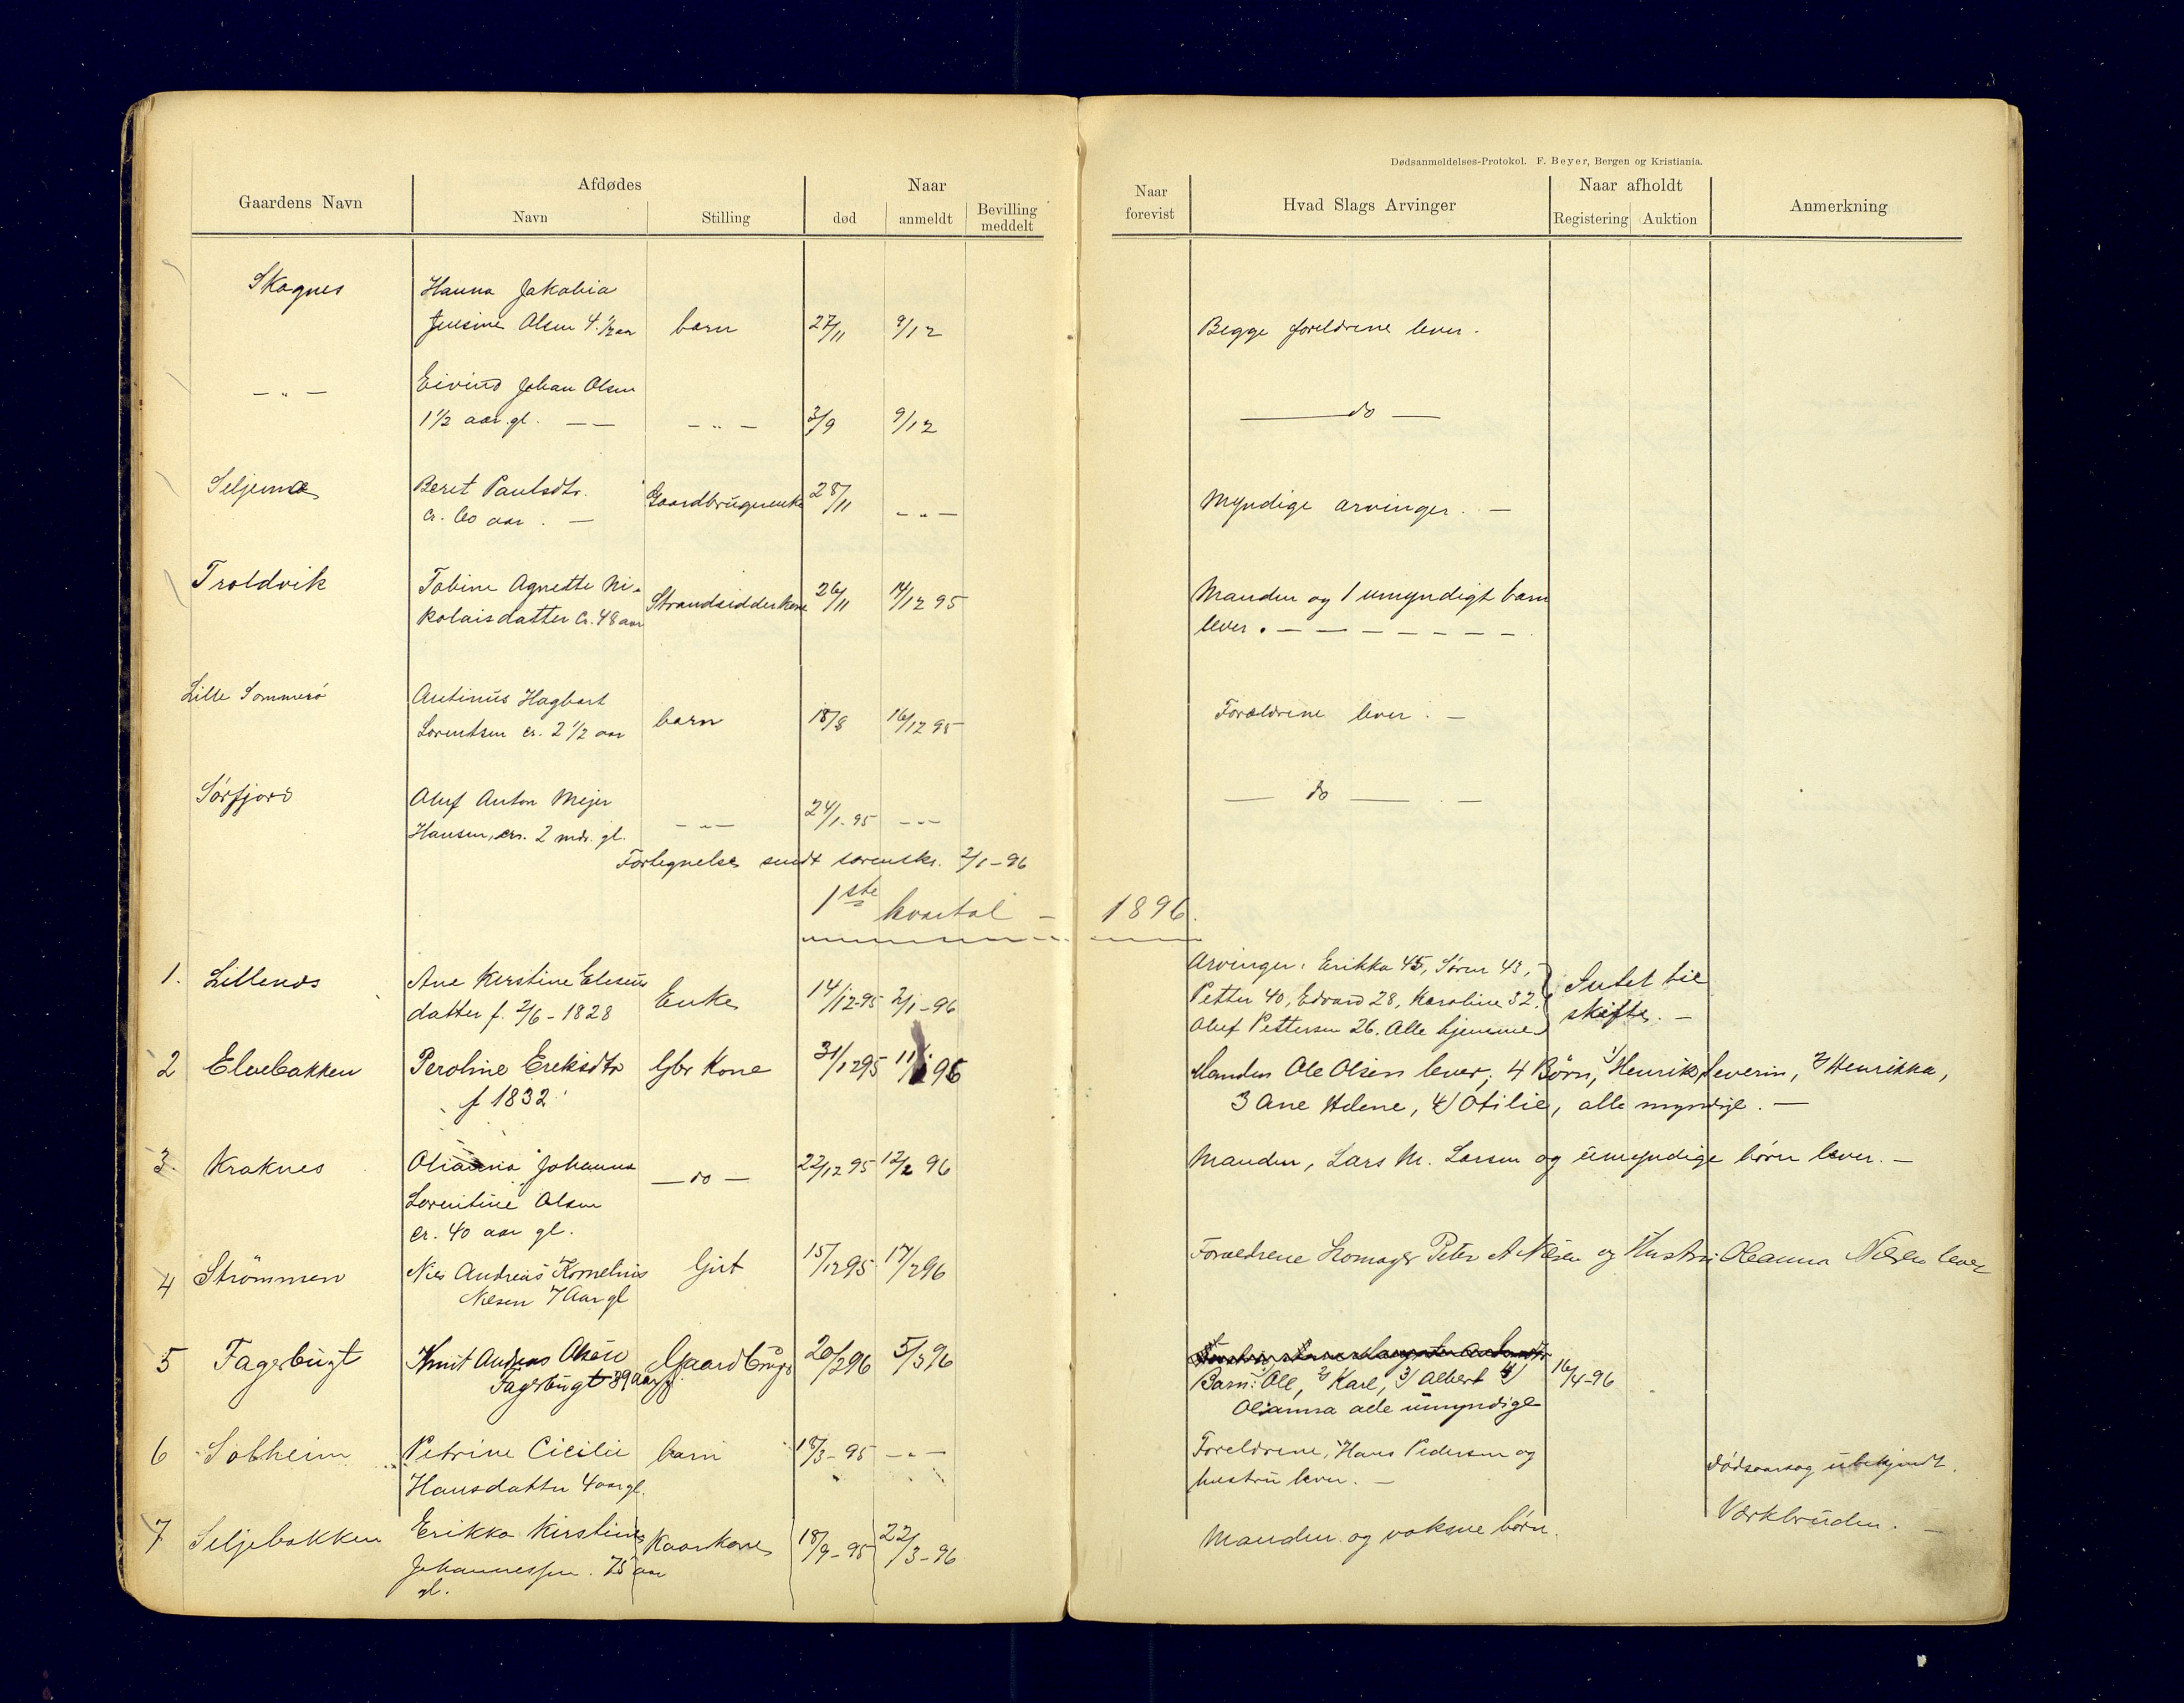 Dødsanmeldelses-Protokol. F. Beyer, Bergen og Kristiania.
Gaardens Navn
Afdødes
Navn
Stilling
Naar
død
anmeldt
Bevilling
meddelt
Naar
forevist
Hvad Slags Arvinger
Naar afholdt
Registering
Auktion
Anmerkning
Skognes
Hanna Jakobia
Julsine Olsen 4. ½ aar
barn
27/11
9/12
Begge foreldrene lever.
— " —
Eivind Johan Olsen
1½ aar. gl. — —
— " —
3/9
9/12
— do —
Seljenæs
Beret Paulsdtr.
cr. 60 aar. —
Gaardbrugerenke
28/11
— " —
Myndige arvinger. —
Troldvik
Tobine Agnette Ni-
kolaisdatter cr. 48 aar
Strandsidderkone
26/11
14/12 95
Manden og 1 umyndigt barn
lever. — — — — — — —
Lille Sommerö
Antinus Hagbart
Lorentsen cr. 2½ aar
barn
18/8
16/12 95
Forældrene lever. —
Sörfjord
Oluf Anton Mejer
Hansen, cr. 2 mdr. gl.
— " —
24/1-95
— " —
— do — . —
Fortegnelse sendt sorenskr. 2/1-96
1ste kvartal — 1896.
1.
Lillenes
Ane Kirstine Eleseus
datter f. 2/6-1828
Enke
14/12-95
2/1-96
Arvinger: Erikka 45, Sören 43,
Petter 40, Edvard 28, Karoline 32.
Oluf Pettersen 26. Alle hjemme
Intet til
skifte. —
2
Elvebakken
Peroline Ereksdtr
f 1832
Gbr Kone
31/12 95
11/1 96
Manden Ole Olsen lever; 4 Børn, 1) Henrik Severin, 2) Henrikka,
3 Ane Helene, 4) Otilie, alle myndige. —
3.
Kraknes
Olianna Johanna
Lorentine Olsen
cr. 40 aar gl.
— do —
22/12 95
12/2 96
Manden, Lars M. Larsen og umyndige börn lever. —
4
Strömmen
Nils Andreas Kornelius
Nilsen 7 Aar gl
Gut
15/12 95
17/2 96
Forældrene Komager Peter A Nilsen og Hustru Oleanna Nilsen lever
5
Fagerbugt
Knut Andreas Olsen
Fagerbugt 39 aar gl.
Gaardbruger
20/2 96
5/3 96
Barn: 1) Ole, 2) Karl, 3) Albert 4)
Olianna alle umyndige
16/4-96
6
Solheim
Petrine Cicilie
Hansdatter 4 aar gl.
barn
18/3-95
— " —
Foreldrene, Hans Pedersen og
hustru lever. —
Dödsaarsag ubekjendt.
7
Seljebakken
Erikka Kirstine
Johannessen. 75 aar
gl.
Kaarkone
18/9-95
22/3-96
Manden og voksne börn.
Værkbruden. —